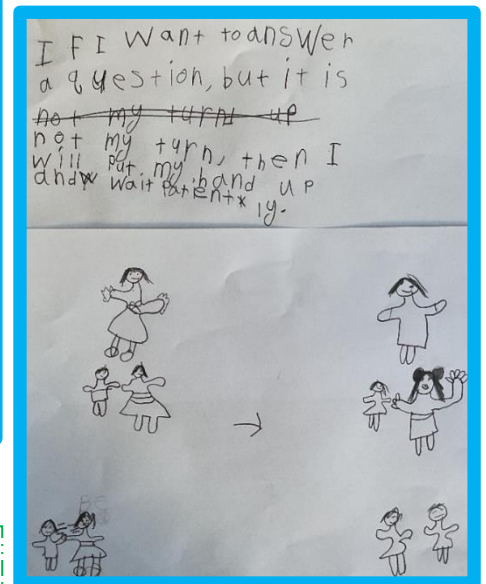 I F I want to answer
a question, but it is
not my turn up
not my turn, then I
will put my hand up
and wait patent*
ly.